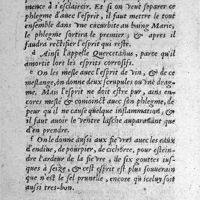 mence à s'esclaircir. Et si on veut separer ce
phlegme d'auec l'esprit, il faut mettre le tout
ensemble dans vne cucurbite au baing Marie,
le phlegme sortira le premier ; & apres il
faudra rectifier l'esprit qui reste.
d Ainsi l'appelle Quercetanus, parce qu'il
amortit lors les esprits corrosifs.
e On les mesle auec l'esprit de vin, & de ce
meslange, on donne deux scrupules ou vne drag-
me. Mais l'esprit ne doit estre pur, ains en-
cores meslé & conioinct auec son phlegme, de
peur qu'il ne cause quelque inflammation, &
il faut auoir le ventre lasche auparauant que
d'en prendre.
f On le donne aussi aux fievres auec les eaux
d'endiue, de pourpier, de cichoree, pour estein-
dre l'ardeur de la fievre, ils six gouttes ius-
ques à seize, & cest esprit est plus souuerain
que n'est le sel prunelle, encor qu'iceluy soit
aussi tres-bon.